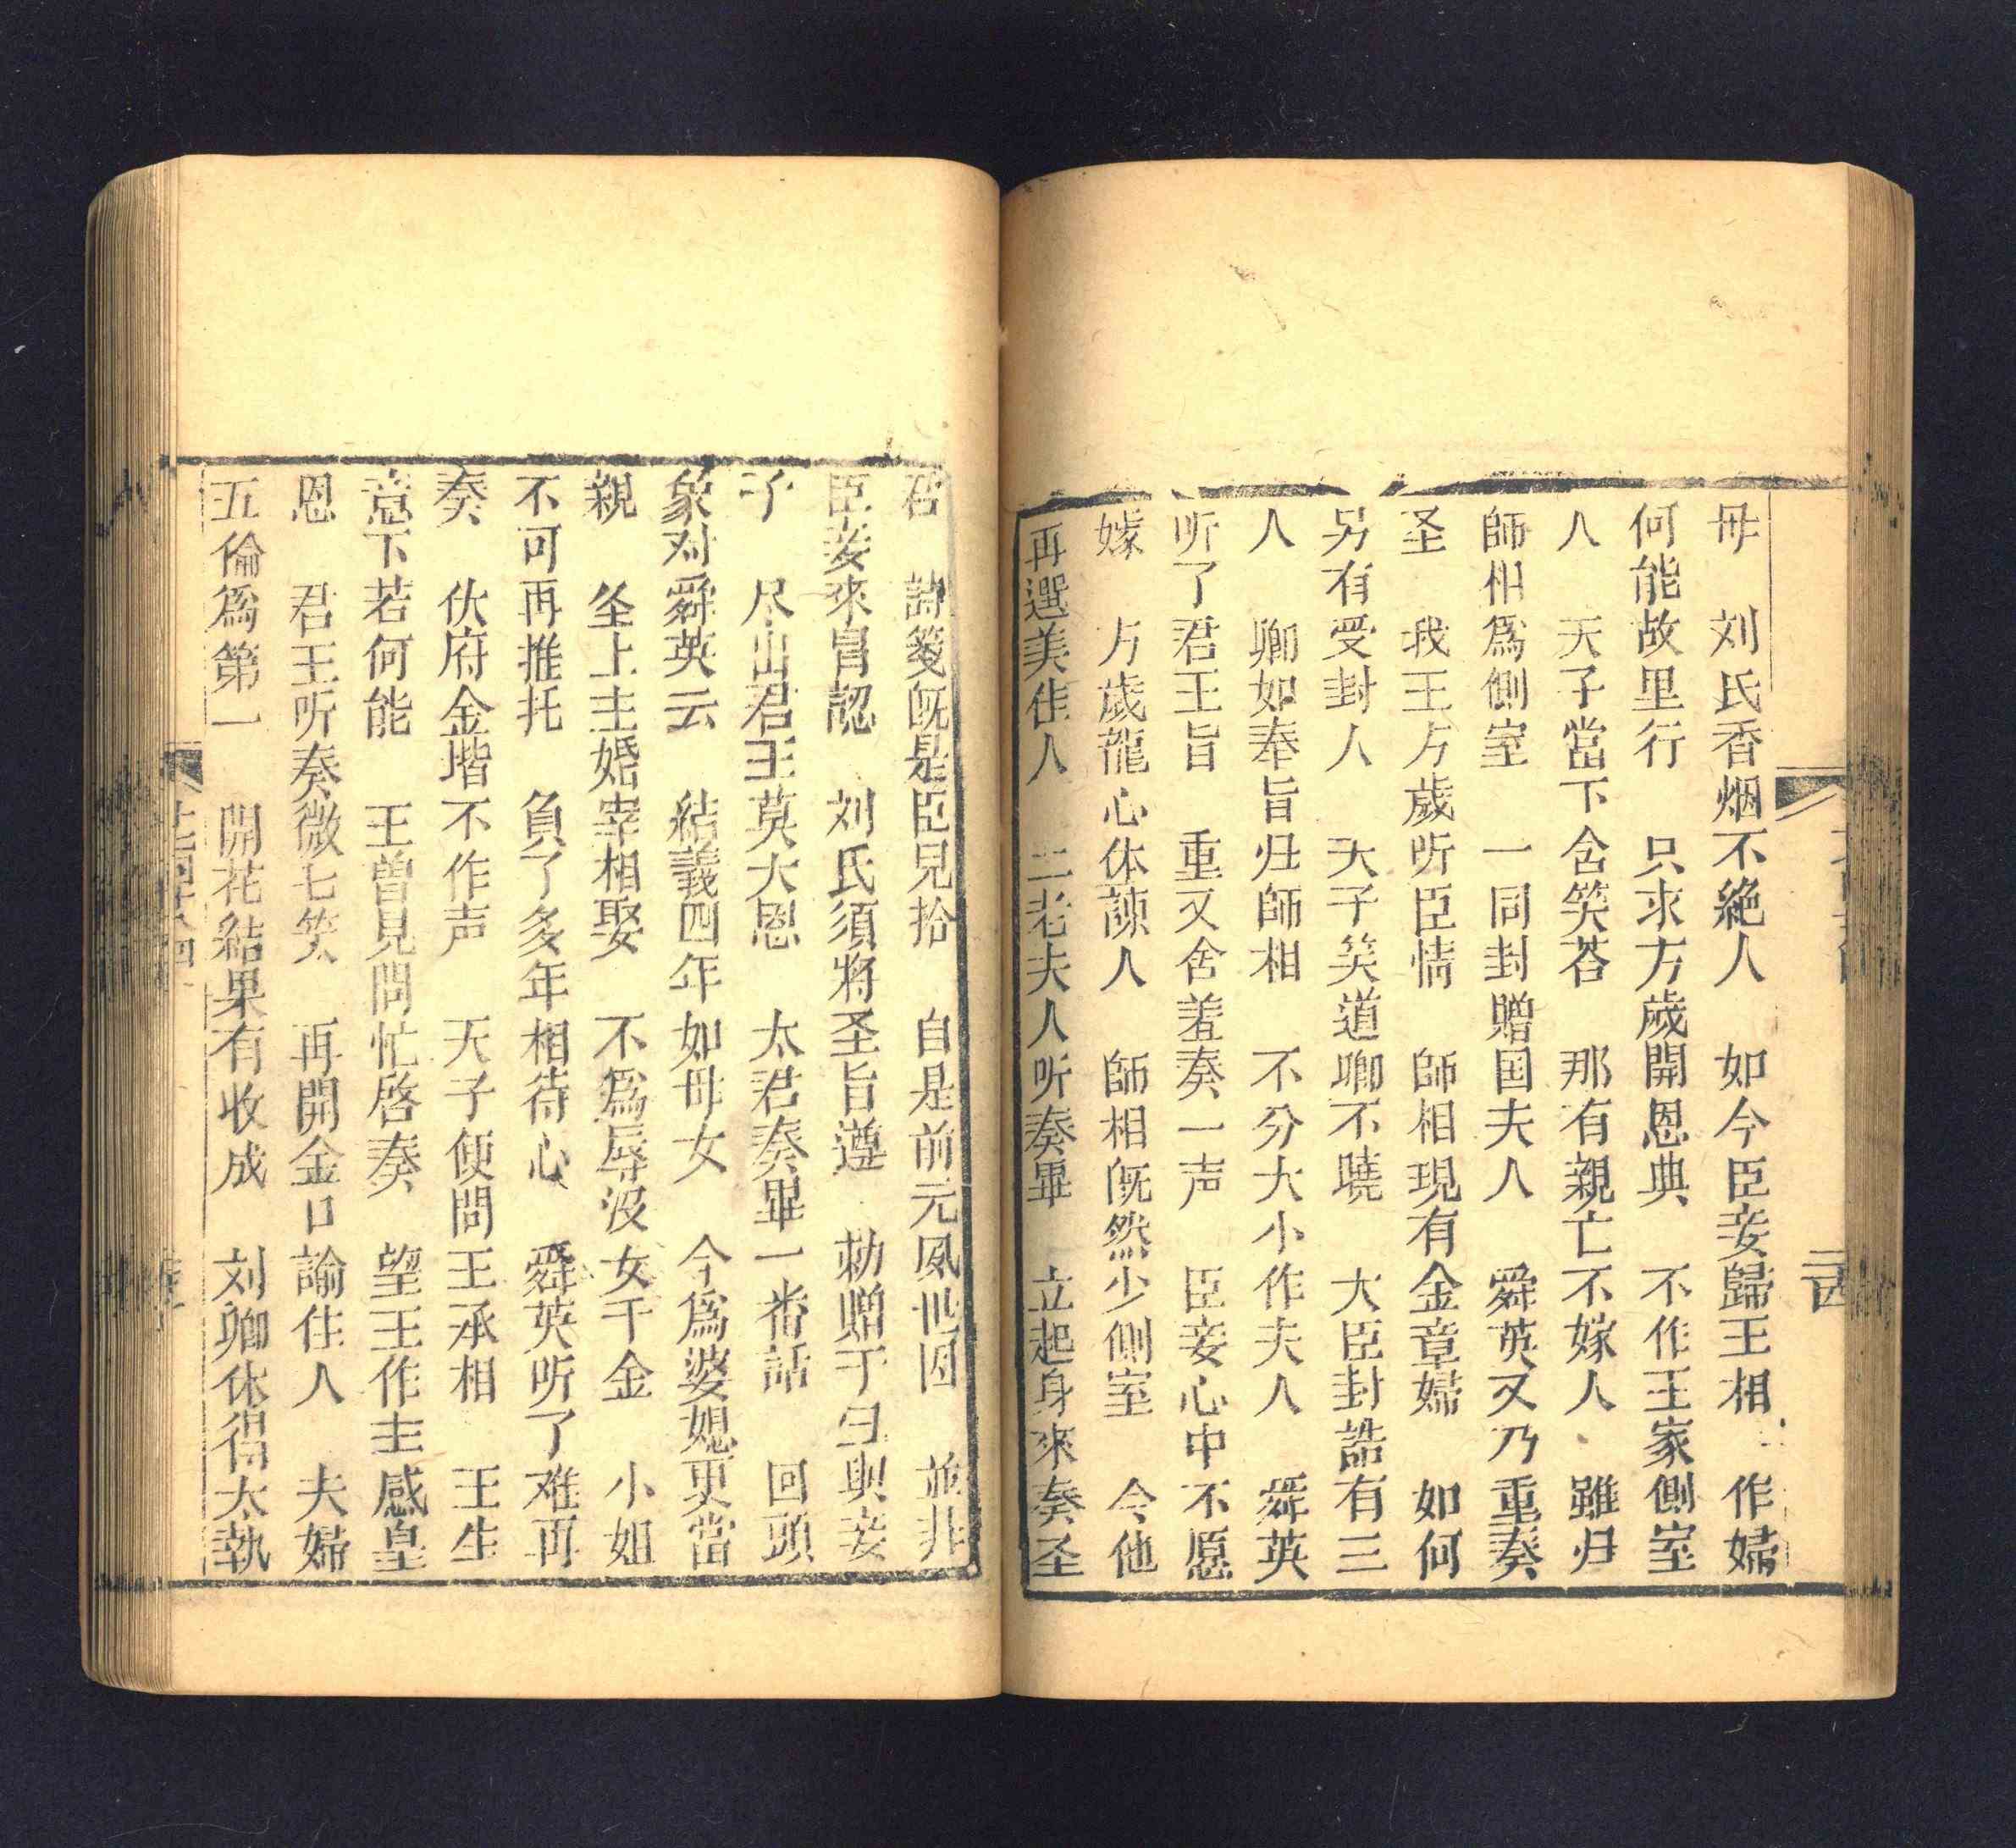 母　刘氏香烟不絶人　如今臣妾歸王相　作婦
何能故里行　只求万歲開恩典　不作王家側室
人　天子當下含笑荅　那有親亡不嫁人　雖归
師相爲側室　一同封贈国夫人　舜英又乃重奏
圣　我王万歲听臣情　師相現有金章婦　如何
另有受封人　天子笑道卿不曉　大臣封誥有三
人　卿如奉旨归師相　不分大小作夫人　舜英
听了君王旨　重又含羞奏一声　臣妾心中不愿
嫁　万歲龍心体諒人　師相旣然少側室　今他
再選美佳人　二老夫人听奏畢　立起身來奏圣
君　詩箋旣是臣兒拾　自是前元夙世因　並非
臣妾來冐認　刘氏須將圣旨遵　勅贈于臣與妾
子　尽出君王莫大恩　太君奏畢一番話　回頭
象对舜英云　結義四年如母女　今爲婆媳更當
親　圣上主婚宰相娶　不爲辱没女千金　小姐
不可再推托　負了多年相待心　舜英听了难再
奏　伏府金堦不作声　天子便問王承相　王生
意下若何能　王曾見問忙啓奏　望王作主感皇
恩　君王听奏微七笑　再開金口諭佳人　夫婦
五倫爲第一　開花結果有收成　刘卿休得太執